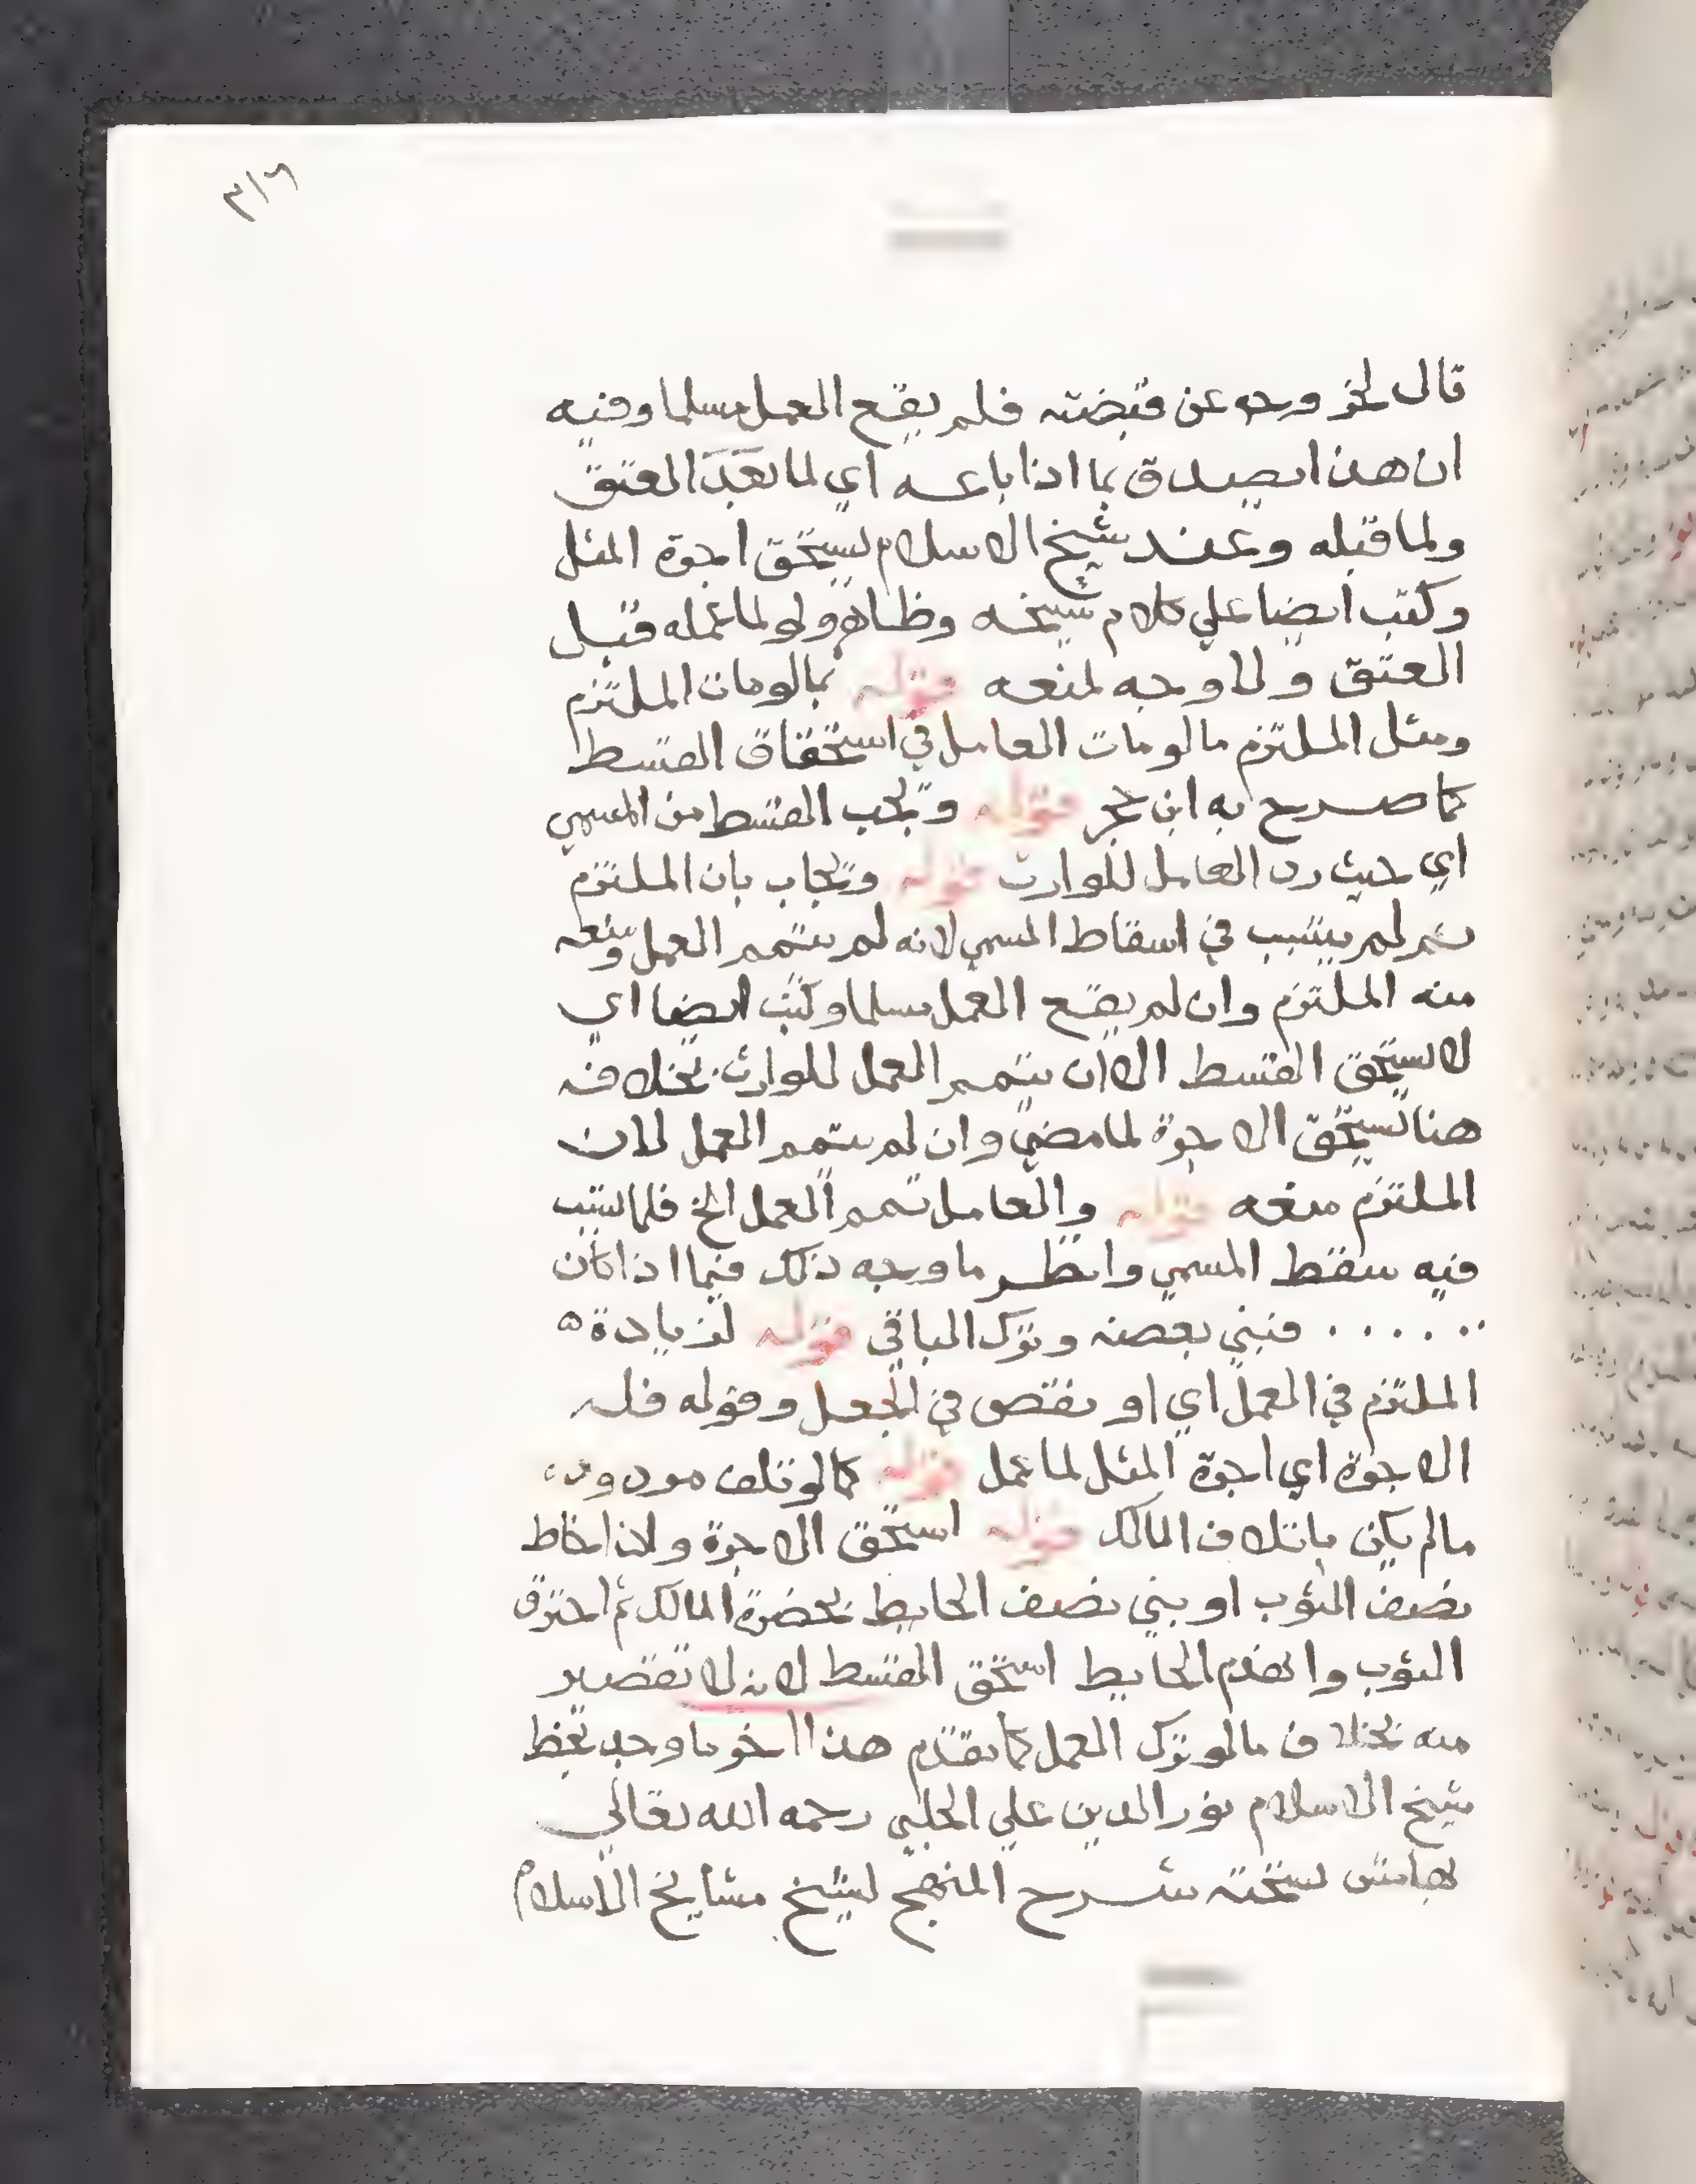 ٣١٦
قال لخروجه عن قبضته فلم يقع العمل مسلما وفيه
ان هذا يصدق بما اذا باعه اي لما بعد العتق
ولما قبله وعند شيخ الاسلام يستحق اجرة المثل
وكتب ايضا علي كلام شيخه وظاهره ولو لما عمله قبل
العتق ولا وجه لمنعه قوله بما لو مات الملتزم
ومثل الملتزم ما لو مات العامل في استحقاق القسط
كما صرح به ابن حجر قوله وتجب القسط من المسمي
اي حيث رد العامل للوارث قوله ويجاب بان الملتزم
ثم لم يتسبب في اسقاط المسمي لانه لم يتمم العمل ومنعه
منه الملتزم وان لم يقع العمل مسلما وكتب ايضا اي
لا يستحق القسط الا ان يتمم العمل للوارث بخلافه
هنا يستحق الاجرة لما مضي وان لم يتمم العمل لان
الملتزم منعه قوله والعامل تمم العمل الخ فلما تسبب
فيه سقط المسمي وانظر ما وجه ذلك فيما اذا كان
. . . . . . فبني بعضه وترك الباقي قوله لزيادة ه
الملتزم في العمل اي او نقص في الجعل وقوله فله
الاجرة اي اجرة المثل لما عمل قوله كما لو تلف مردوده
مالم يكن باتلاف المالك قوله استحق الاجرة ولذا خاط
نصف الثوب او بني نصف الحايط بحضرة المالك ثم احترق
الثوب وانهدم الحايط استحق القسط لانه لا تقصير
منه بخلاف مالو ترك العمل كما تقدم هذا اخر ما وجد بخط
شيخ الاسلام نور الدين علي الحلبي رحمه الله تعالي
بهامش نسخته شرح المنهج لشيخ مشايخ الاسلام